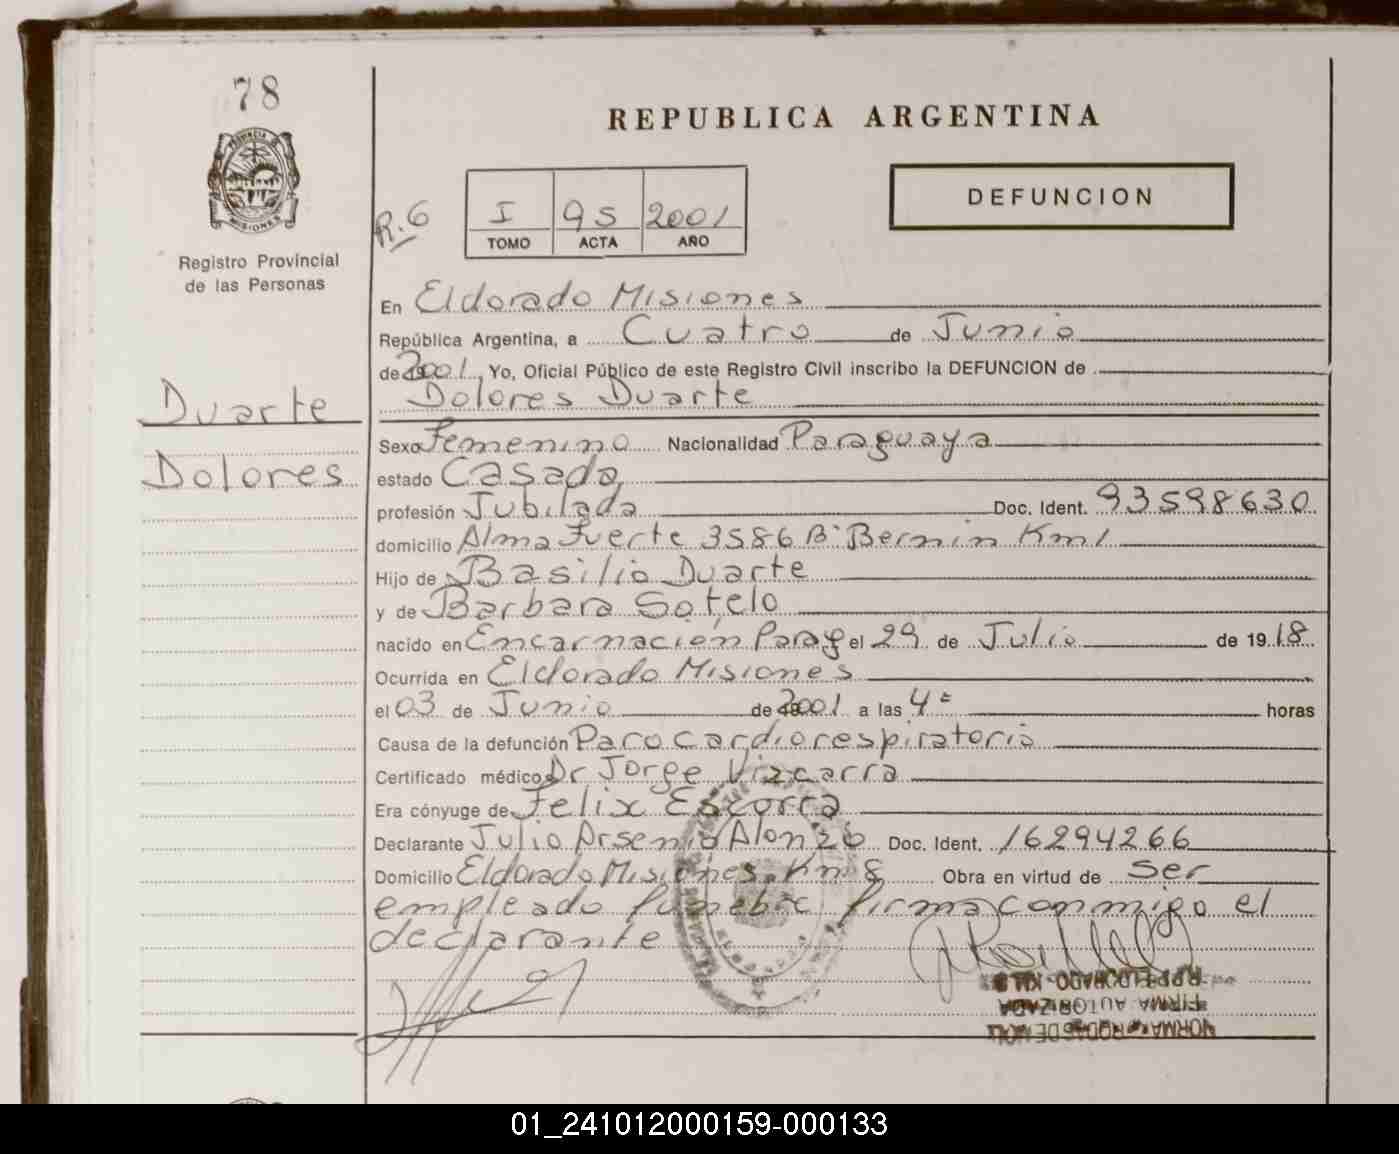 78
PROVINCIA DE
MISIONES
Registro Provincial
de las Personas
Duarte
Dolores
REPUBLICA ARGENTINA
R.6
I 95 2001
TOMO ACTA AÑO
DEFUNCION
En Eldorado Misiones
República Argentina, a Cuatro de Junio
de 2001. Yo, Oficial Público de este Registro Civil inscribo la DEFUNCION de
Dolores Duarte
Sexo Femenino Nacionalidad Paraguaya
estado Casada
profesión Jubilada Doc. Ident. 93598630
domicilio Alma Fuerte 3586 B° Bernin Km 1
Hijo de Basilio Duarte
y de Barbara Sotelo
nacido en Encarnación Parag el 29 de Julio de 1918
Ocurrida en Eldorado Misiones
el 03 de Junio de 2001 a las 4= horas
Causa de la defunción Paro cardiorespiratorio
Certificado médico Dr Jorge Vizcarra
Era cónyuge de Felix Escurra
Declarante Julio Arsenio Alonzo Doc. Ident. 16294266
Domicilio Eldorado Misiones Km 8 Obra en virtud de Ser
empleado funebre firma conmigo el
declarante
R.P.P. ELDORADO KM. 8
FIRMA AUTORIZADA
NORMA RODAS DE MOLL
01_241012000159-000133